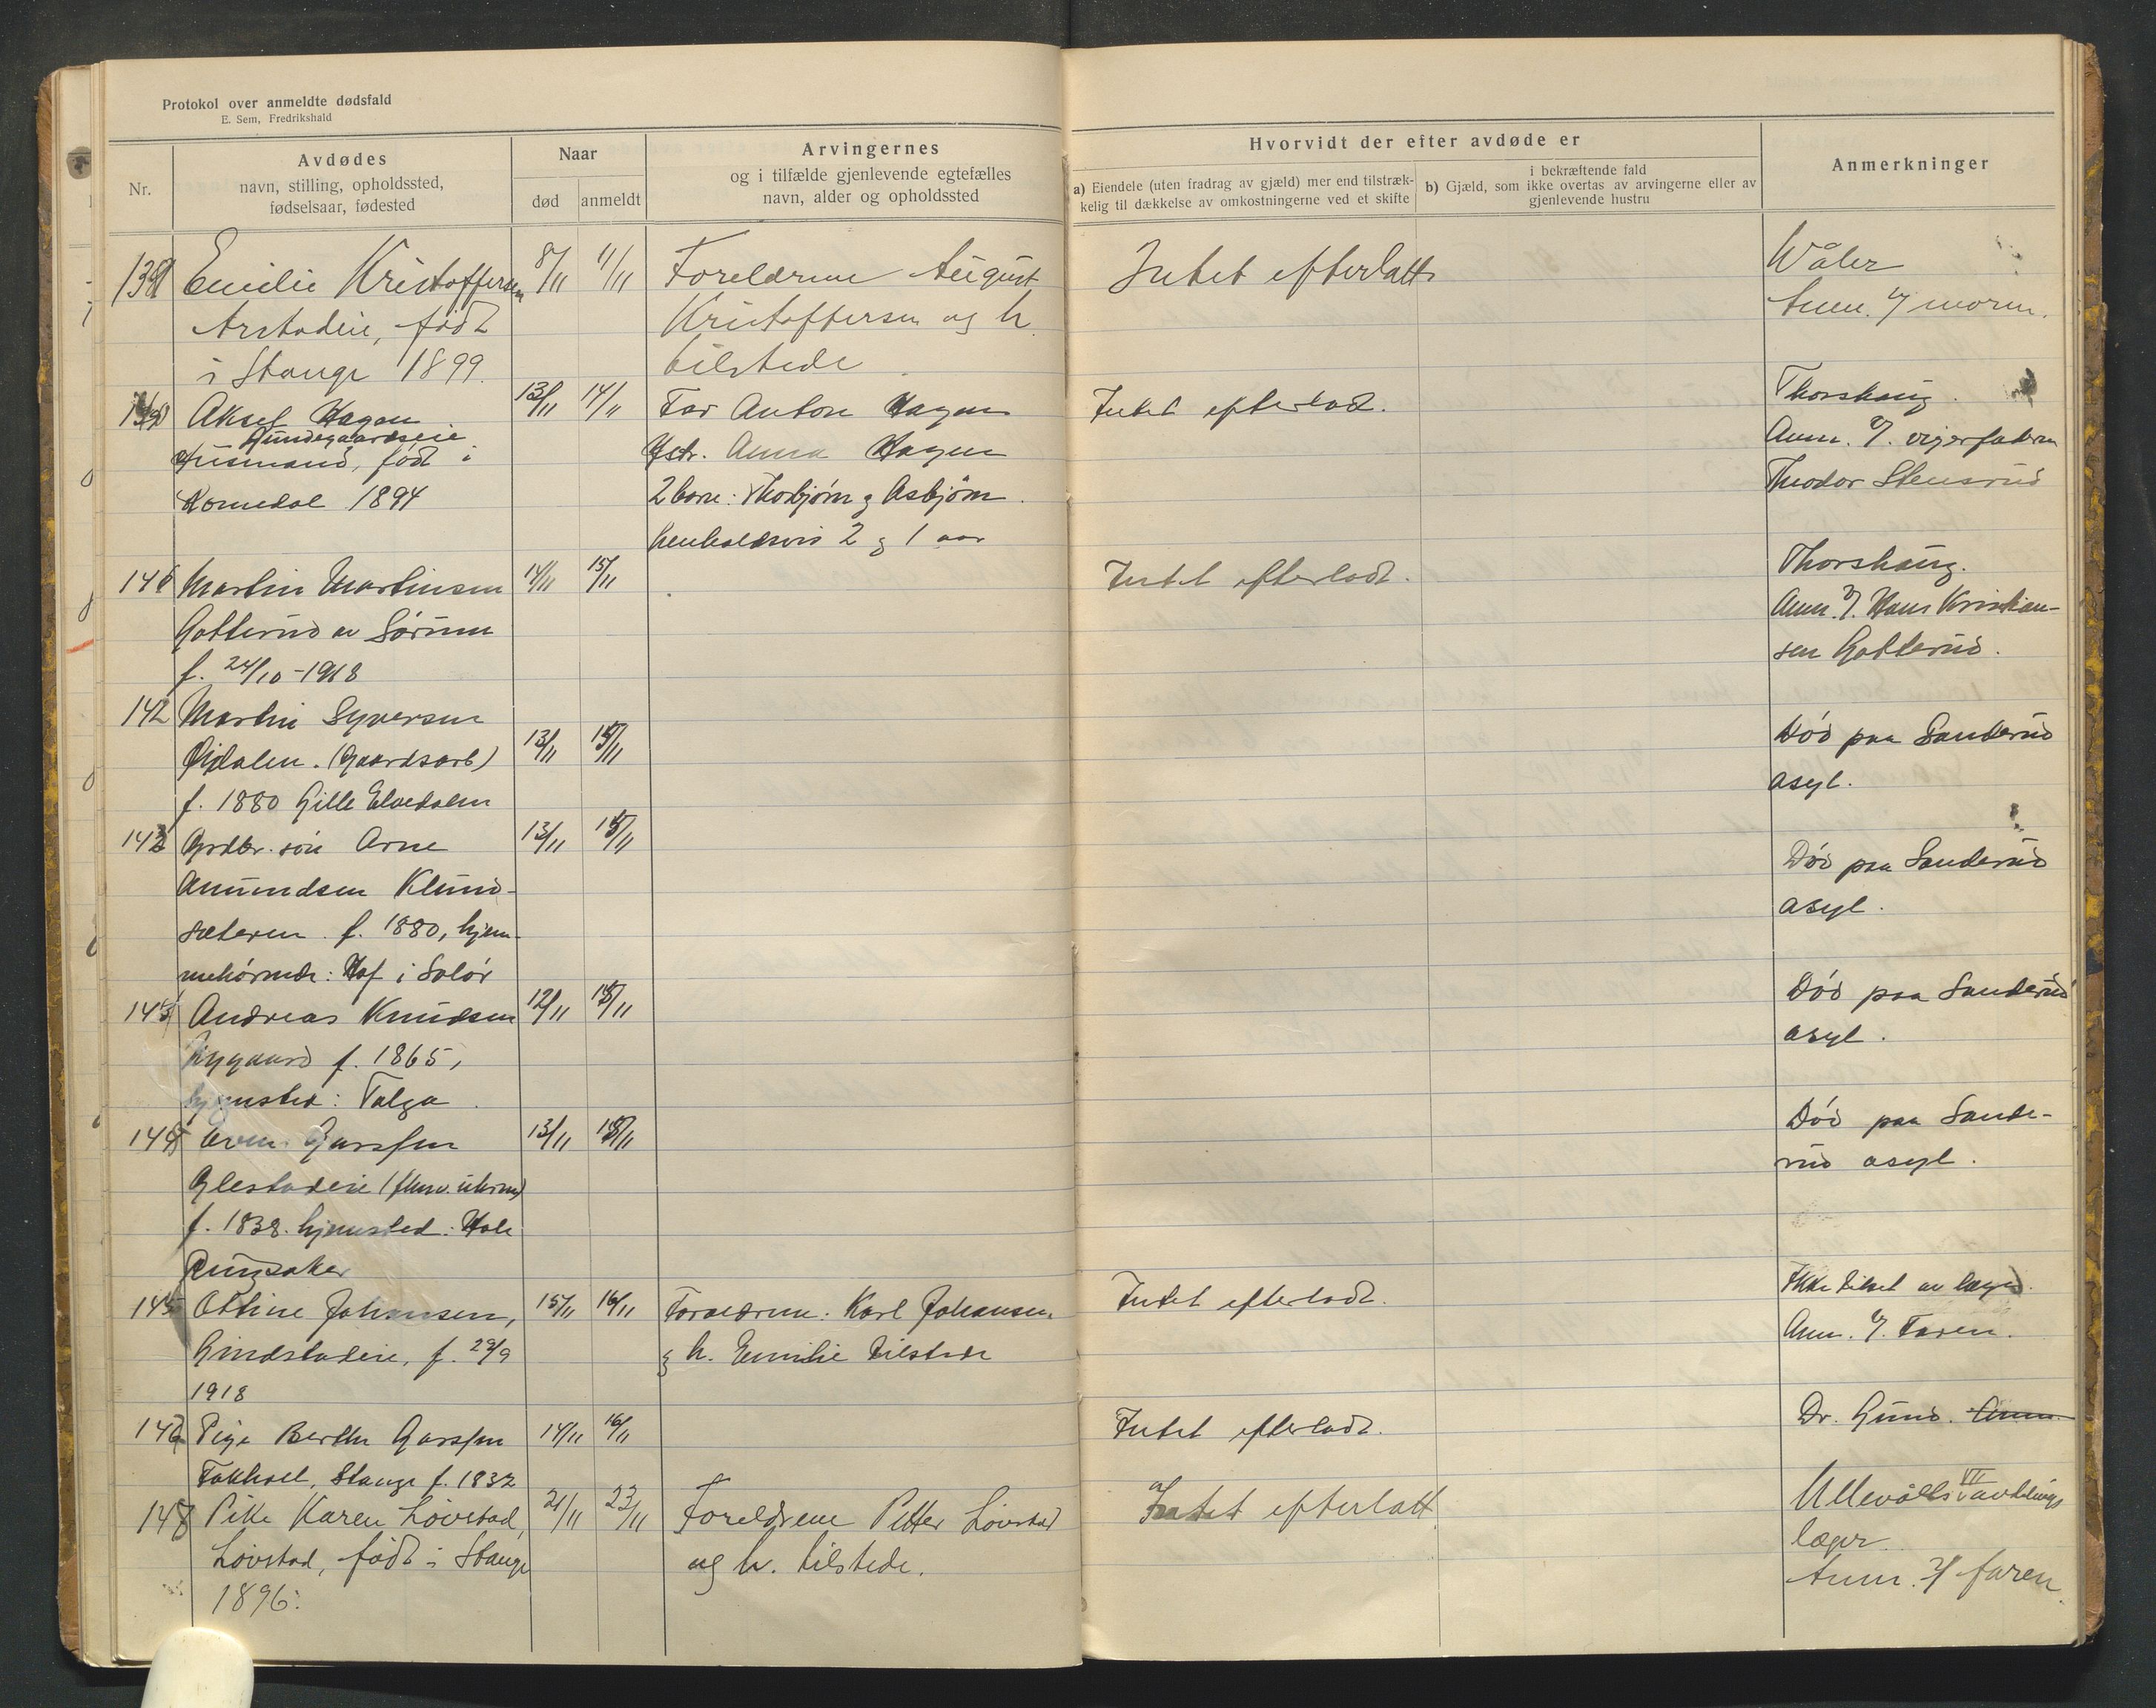 Protokol over anmeldte dødsfald
E. Sem, Fredrikshald
Nr.
Avdødes
navn, stilling, opholdssted,
fødselsaar, fødested
Naar
død
anmeldt
Arvingernes
og i tilfælde gjenlevende egtefælles
navn, alder og opholdssted
Hvorvidt der efter avdøde er
a) Eiendele (uten fradrag av gjæld) mer end tilstræk-
kelig til dækkelse av omkostningerne ved et skifte
i bekræftende fald
b) Gjæld, som ikke overtas av arvingerne eller av
gjenlevende hustru
Anmerkninger
139 Emilie Kristoffersen 8/11 11/11 Foreldrene August Intet efterlatt. Wåler
Arstadeie, født Kristoffersen og h. Anm. af moren.
i Stange 1899. tilstede
Aksel Hagen 13/11 14/11 Far Anton Hagen Intet efterladt. Thorshaug.
Husmand, født i Gstr. Anna Hagen Anm. af. svigerfaderen
Romedal 1894 2 barn: Thorbjørn g Asbjørn. Theodor Stensrud
henholdsvis 2 g 1 aar
141 Martin Martinsen 14/11 15/11 Intet efterladt. Thorshaug.
Gotterud av Sørum Anm. af. Hans Kristian-
f. 24/10-1918 sen Gotterud.
142 Martin Syversen
13/11 15/11 Død paa Sanderud
f. 1880 Lille Elvedalen asyl.
143 Grdbr. søn Arne 13/11 15/11
Amundsen Klund- Død paa Sanderud
sæteren. f. 1880, hjem- asyl.
mehørende: Hof i Solør
144 Andreas Knudsen 12/11 15/11 Død paa Sanderud
Nygaard f. 1865, asyl.
hjemsted: Tolga.
145 Even Larssen 13/11 15/11 Død paa Sande-
rud asyl.
f. 1838. hjemsted: Hole
Ringsaker
Ottine Johansen, 15/11 16/11 Forældrene: Karl Johansen Intet efterladt. Ikke tilset av læge.
Grindstadeie, f. 29/9 g h. Emilie tilstede Anm. af. Faren.
1918
Pige Berthe Larssen 14/11 16/11 Intet efterladt. Dr. Lund. Anm.
Stange f. 1832
Pike Karen Løvstad, 21/11 23/11 Foreldrene Petter Løvstad Intet efterlatt Ullevåls VII avdelings
Løvstad, født i Stange og h. tilstede. læger.
1896. Anm. af faren.